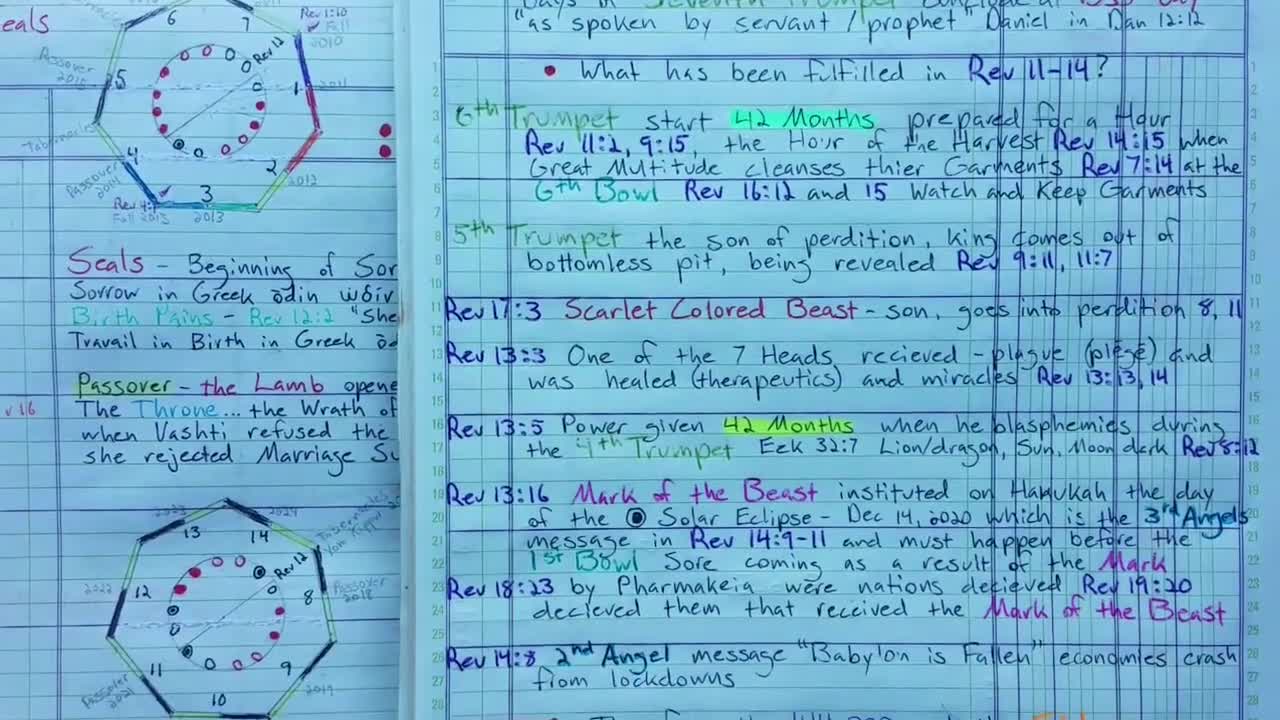 eals
6
7
Rev 1:10
Fall
2010
Rev 12
Passover
5
1
2011
Tabernacles
4
2
2012
Passover
3
Rev 4:1
Fall 2013
2013
Seals - Beginning of Sor
Sorrow in Greek ōdin ωδίν
Birth Pains - Rev 12:2 "She
Travail in Birth in Greek ōd
Passover - the Lamb opene
v 16
The Throne... the Wrath of
when Vashti refused the
she rejected Marriage Su
2023
2024
13
14
Tabernacles
Yom Kippur
Rev 12
2022
12
8
Passover
2018
11
9
Passover
2021
10
2019
Days in Seventh Trumpet
"as spoken by servant / prophet" Daniel in Dan 12:12
• What has been fulfilled in Rev 11-14?
6th Trumpet start 42 Months prepared for a Hour
Rev 11:2, 9:15, the Hour of the Harvest Rev 14:15 when
Great Multitude cleanses thier Garments Rev 7:14 at the
6th Bowl Rev 16:12 and 15 Watch and Keep Garments
5th Trumpet the son of perdition, king comes out of
bottomless pit, being revealed Rev 9:11, 11:7
Rev 17:3 Scarlet Colored Beast - son, goes into perdition 8, 11
Rev 13:3 One of the 7 Heads recieved - plague (plēgē) and
was healed (therapeutics) and miracles Rev 13:13, 14
Rev 13:5 Power given 42 Months when he blasphemies during
the 4th Trumpet Eek 32:7 Lion/dragon, Sun, Moon dark Rev 8:12
Rev 13:16 Mark of the Beast instituted on Hanukah the day
of the Solar Eclipse - Dec 14, 2020 which is the 3rd Angels
message in Rev 14:9-11 and must happen before the
1st Bowl Sore coming as a result of the Mark
Rev 18:23 by Pharmakeia were nations decieved Rev 19:20
decieved them that received the Mark of the Beast
Rev 14:8 2nd Angel message "Babylon is Fallen" economies crash
from lockdowns